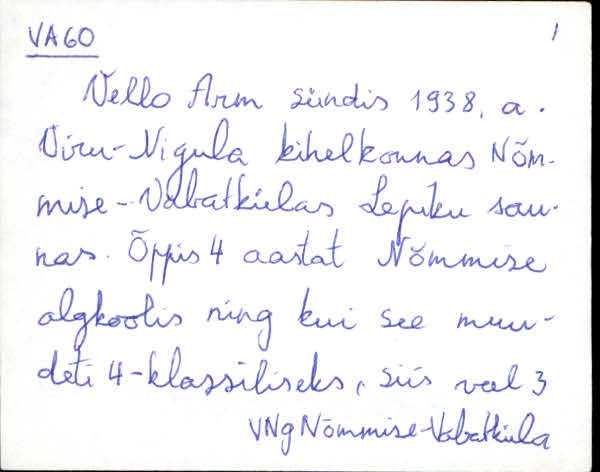 VA60 1
Vello Arm sündis 1938. a.
Viru-Nigula kihelkonnas Nõm-
mise-Vabatkülas Lepiku sau-
nas. Õppis 4 aastat Nõmmise
algkoolis ning kui see muu-
deti 4-klassiliseks, siis veel 3
VNg Nõmmise-Vabatküla